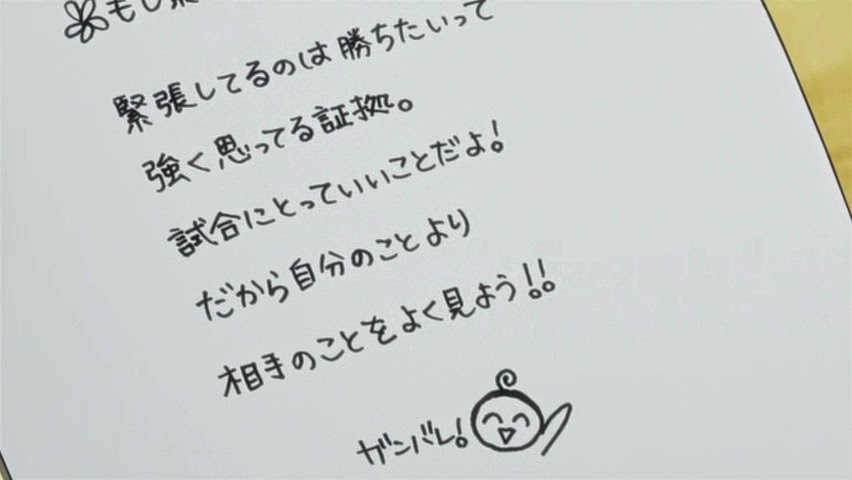 もし
緊張してるのは勝ちたいって
強く思ってる証拠。
試合にとっていいことだよ!
だから自分のことより
相手のことをよく見よう!!
ガンバレ!